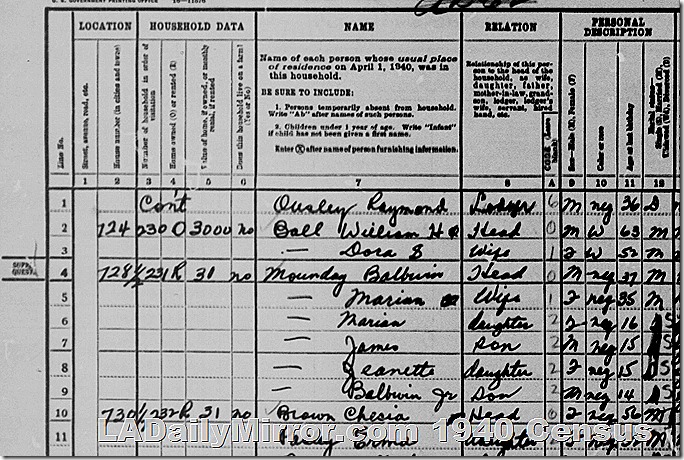 U. S. GOVERNMENT PRINTING OFFICE 16—11576
LOCATION HOUSEHOLD DATA NAME RELATION PERSONAL DESCRIPTION
Line No.
Street, avenue, road, etc.
House number (in cities and towns)
Number of household in order of visitation
Home owned (O) or rented (R)
Value of home, if owned, or monthly rental, if rented
Does this household live on a farm? (Yes or No)
Name of each person whose usual place
of residence on April 1, 1940, was in
this household.
BE SURE TO INCLUDE:
1. Persons temporarily absent from household.
Write "Ab" after names of such persons.
2. Children under 1 year of age. Write "Infant"
if child has not been given a first name.
Enter Ⓧ after name of person furnishing information.
Relationship of this per-
son to the head of the
household, as wife,
daughter, father,
mother-in-law, grand-
son, lodger, lodger's
wife, servant, hired
hand, etc.
CODE (Leave blank)
Sex—Male (M), Female (F)
Color or race
Age at last birthday
1 2 3 4 5 6 7 8 A 9 10 11 12
1 Con't Ousley Raymond Lodger 6 M neg 36 D
2 724 230 O 3000 no Ball William H Head 0 M W 63 M
3 — Dora S Wife 1 F W 52 M
SUPPL. QUEST.
4 728½ 231 R 31 no Mounday Baldwin Head 0 M neg 37 M
5 — Marian Wife 1 F neg 35 M
6 — Marian daughter 2 F neg 16 S
7 — James son 2 M neg 15 S
8 — Jeanette daughter 2 F neg 15 S
9 — Baldwin Jr Son 2 M neg 14 S
10 730½ 232 R 31 no Brown Chesia Head 0 F neg 56
11 Erma daughter
LADailyMirror.com 1940 Census